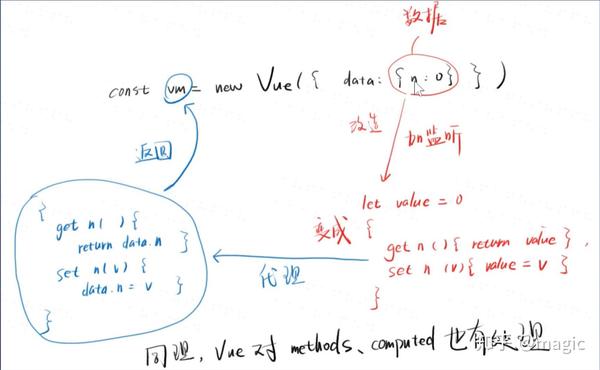 数据
const vm = new Vue({ data: {n:0} })
改造
加监听
返回
let value = 0
变成
{
get n(){ return value },
set n(v){ value = v }
}
代理
{
get n( ) {
return data.n
}
set n(v) {
data.n = v
}
}
同理, Vue 对 methods、computed 也有处理
知乎 @magic